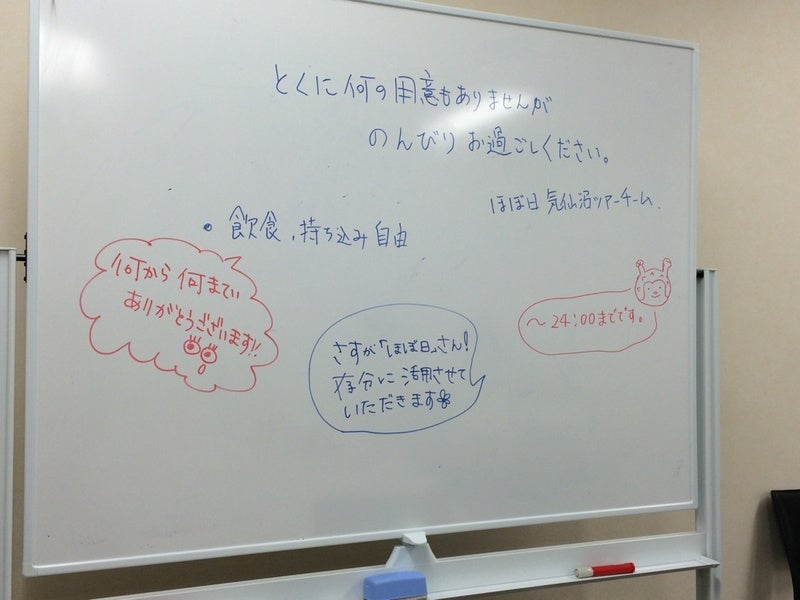 とくに何の用意もありませんが
のんびりお過ごしください。
ほぼ日 気仙沼ツアーチーム.
• 飲食、持ち込み自由
何から何まで
ありがとうございます!!
さすが「ほぼ日」さん!
存分に活用させて
いただきます
～24:00までです。